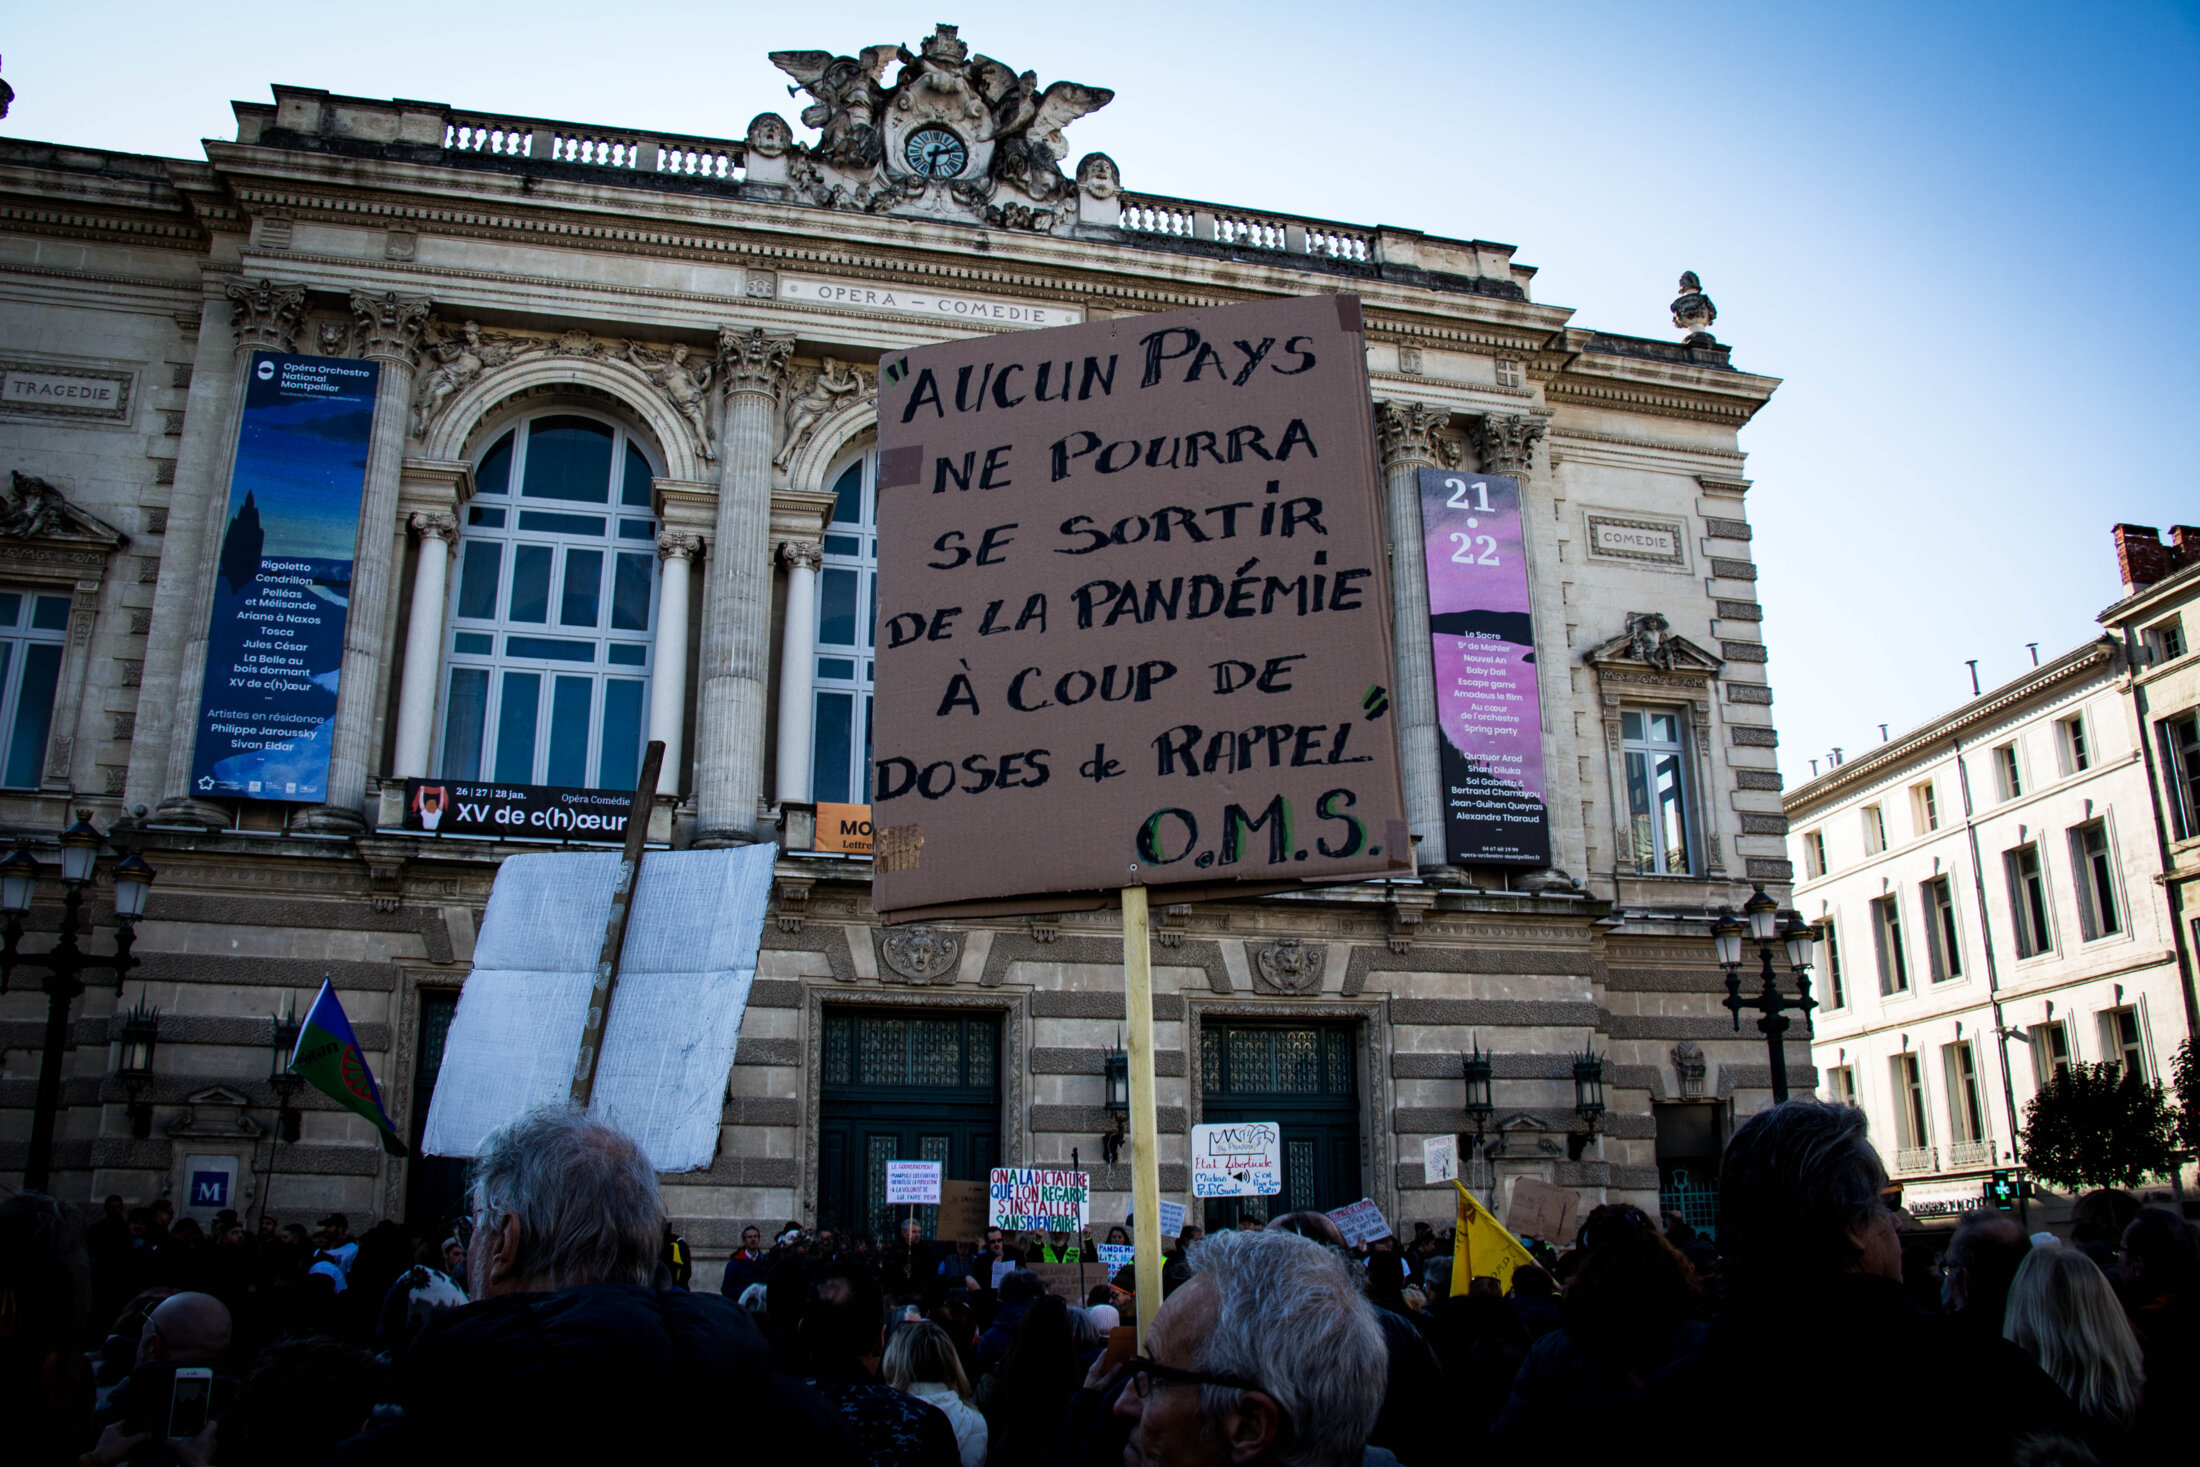 OPERA – COMEDIE
TRAGEDIE
COMEDIE
Opéra Orchestre
National
Montpellier
Rigoletto
Cendrillon
Pelléas
et Mélisande
Ariane à Naxos
Tosca
Jules César
La Belle au
bois dormant
XV de c(h)œur
Artistes en résidence
Philippe Jaroussky
Sivan Eldar
26 | 27 | 28 jan.
Opéra Comédie
XV de c(h)œur
MO
Lettre
"AUCUN PAYS
NE POURRA
SE SORTIR
DE LA PANDÉMIE
À COUP DE
DOSES de RAPPEL"
O.M.S.
21
•
22
Le Sacre
5e de Mahler
Nouvel An
Baby Doll
Escape game
Amadeus le film
Au cœur
de l'orchestre
Spring party
Quatuor Arod
Shani Diluka
Sol Gabetta &
Bertrand Chamayou
Jean-Guihen Queyras
Alexandre Tharaud
04 67 60 19 99
opera-orchestre-montpellier.fr
M
LE GOUVERNEMENT
- MANIPULE LES CHIFFRES
- INFANTILISE LA POPULATION
- A LA VOLONTÉ DE
FAIRE PEUR
ON A LA DICTATURE
QUE L'ON REGARDE
S'INSTALLER
SANS RIEN FAIRE
Big PHARMA
État Liberticide
Médias
C'est
PropaGande